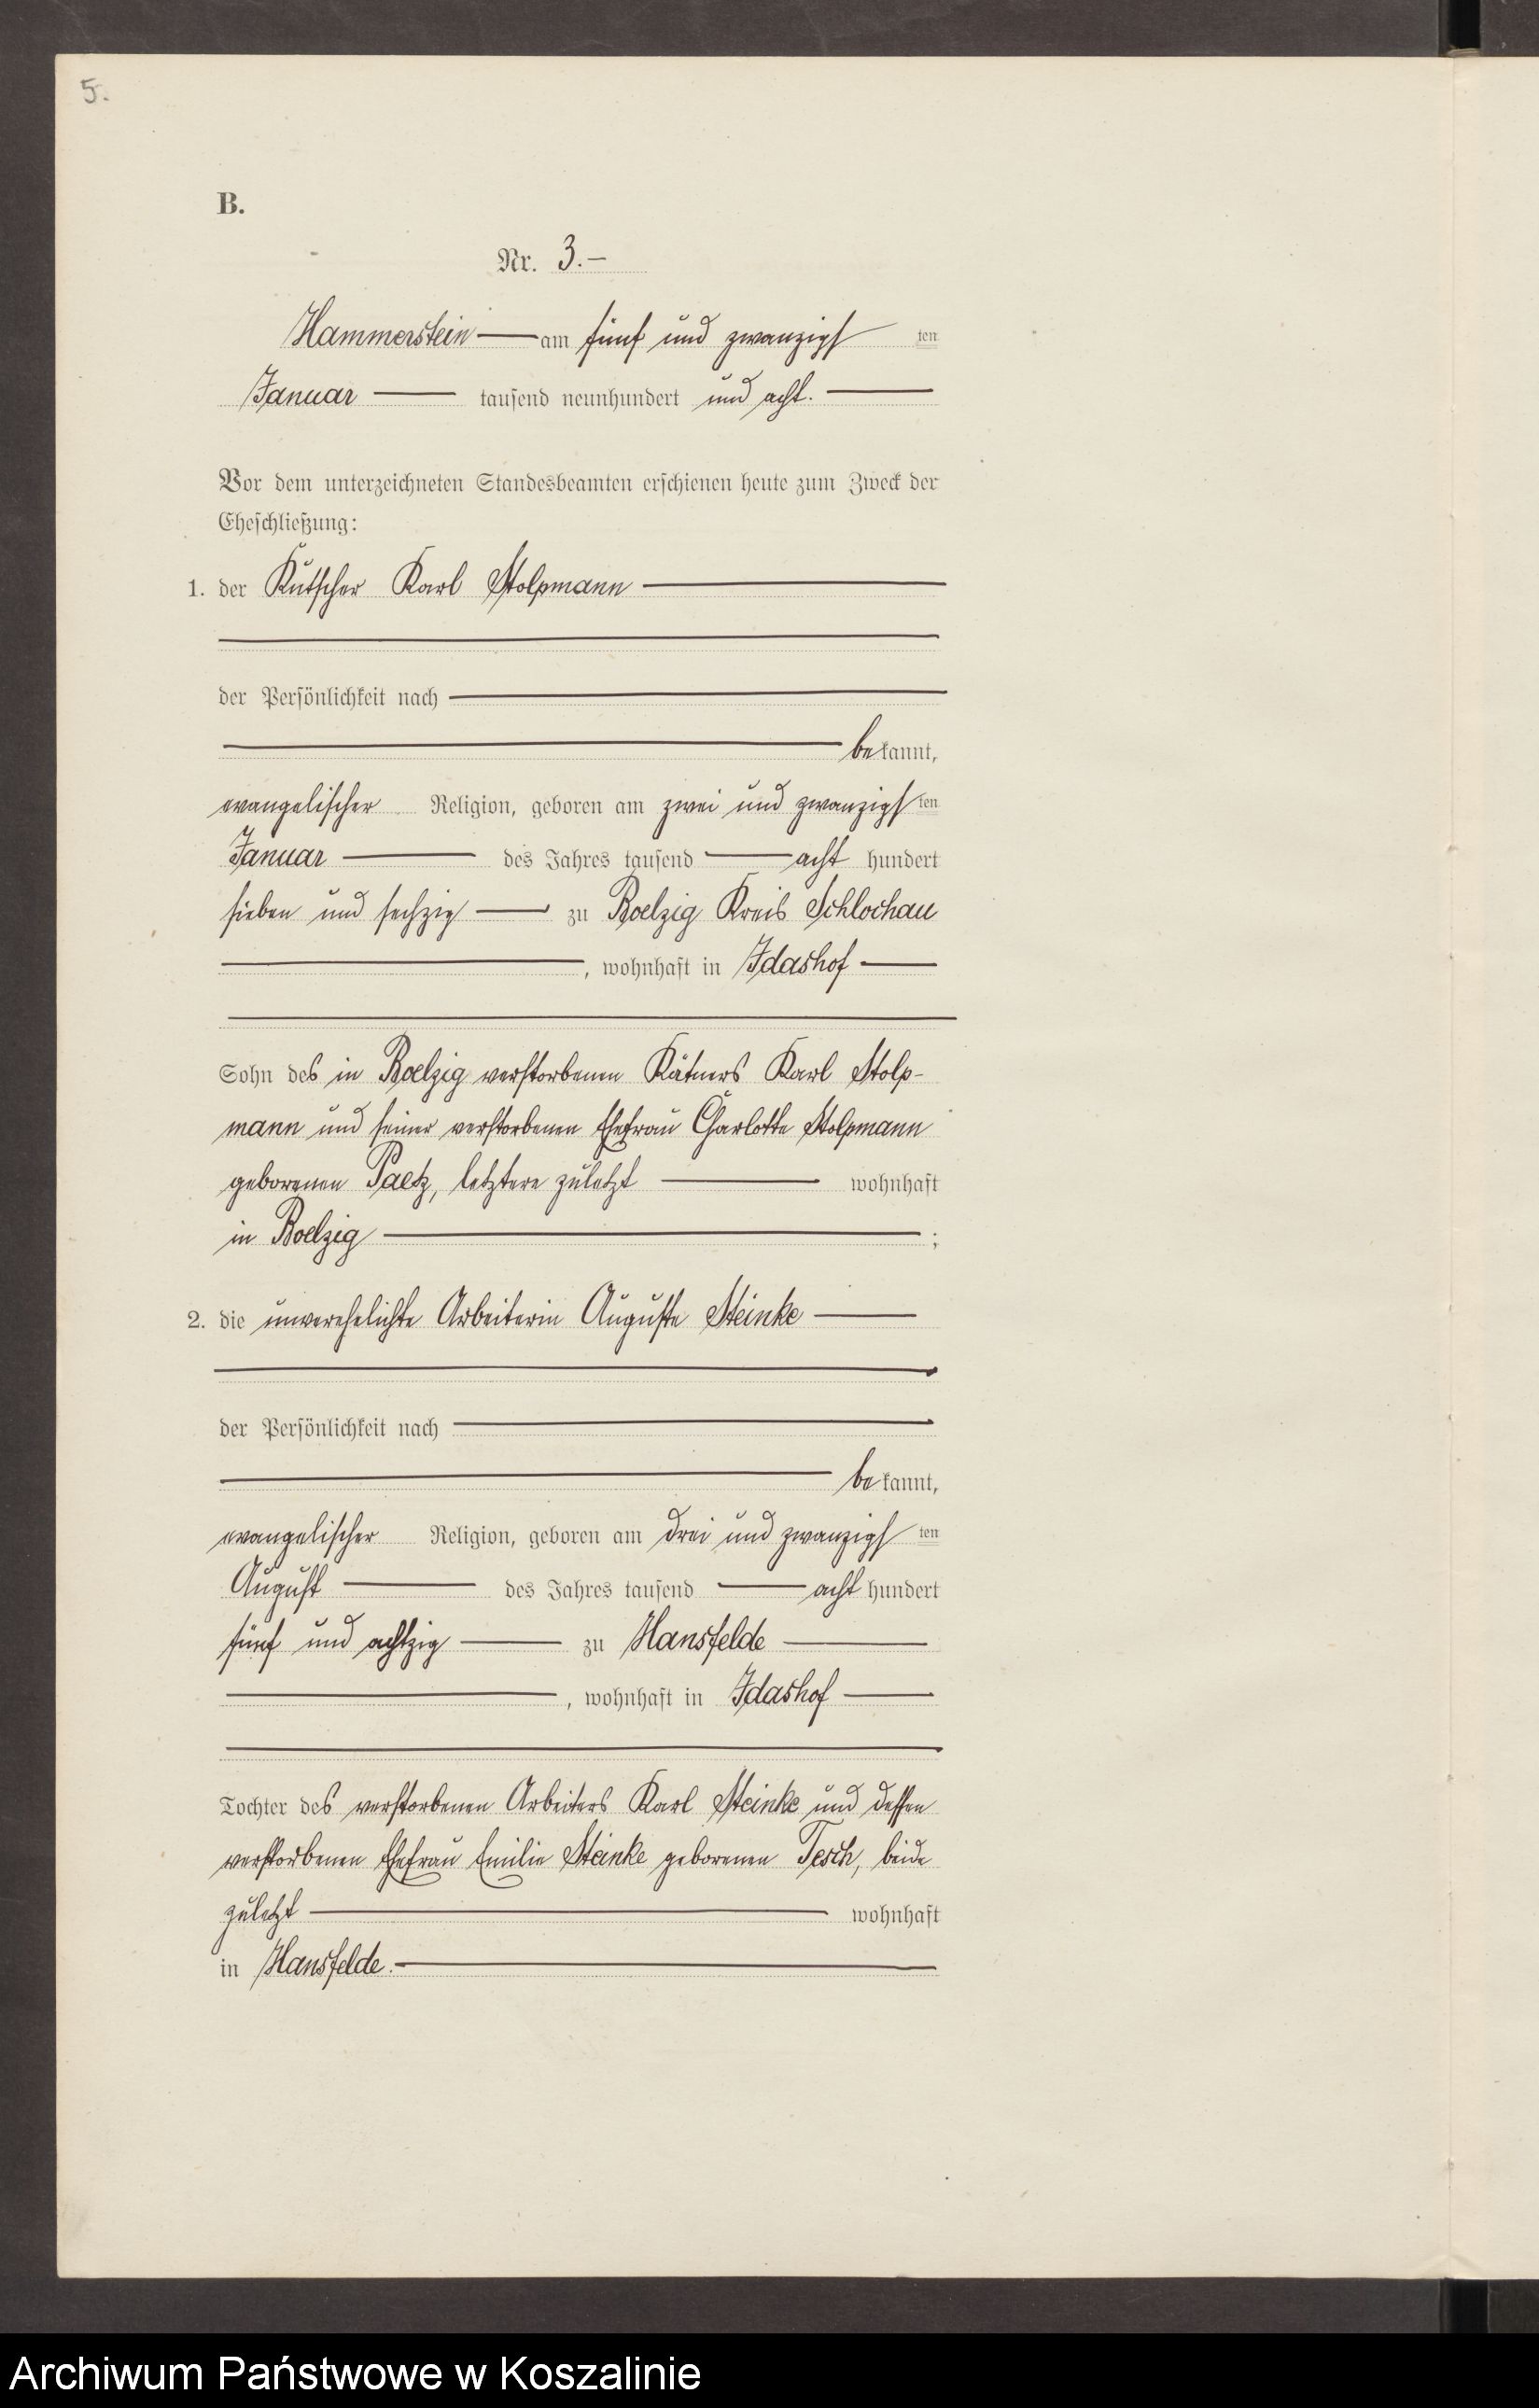 5.
B.
Nr. 3.-
Hammerstein — am fünf und zwanzigsten
Januar — tausend neunhundert und acht. —
Vor dem unterzeichneten Standesbeamten erschienen heute zum Zweck der
Eheschließung:
1. der Kutscher Karl Stolpmann —
der Persönlichkeit nach —
— bekannt,
evangelischer Religion, geboren am zwei und zwanzigsten
Januar — des Jahres tausend — acht hundert
sieben und sechzig — zu Roelzig Kreis Schlochau
—, wohnhaft in Idashof —
Sohn des in Roelzig verstorbenen Kätners Karl Stolp-
mann und seiner verstorbenen Ehefrau Charlotte Stolpmann
geborenen Paetz, letztere zuletzt — wohnhaft
in Roelzig — ;
2. die unverehelichte Arbeiterin Auguste Steinke —
der Persönlichkeit nach —
— bekannt,
evangelischer Religion, geboren am drei und zwanzigsten
August — des Jahres tausend — acht hundert
fünf und achtzig — zu Hansfelde —
—, wohnhaft in Idashof —
Tochter des verstorbenen Arbeiters Karl Steinke und dessen
verstorbenen Ehefrau Emilie Steinke geborenen Tesch, beide
zuletzt — wohnhaft
in Hansfelde. —
Archiwum Państwowe w Koszalinie